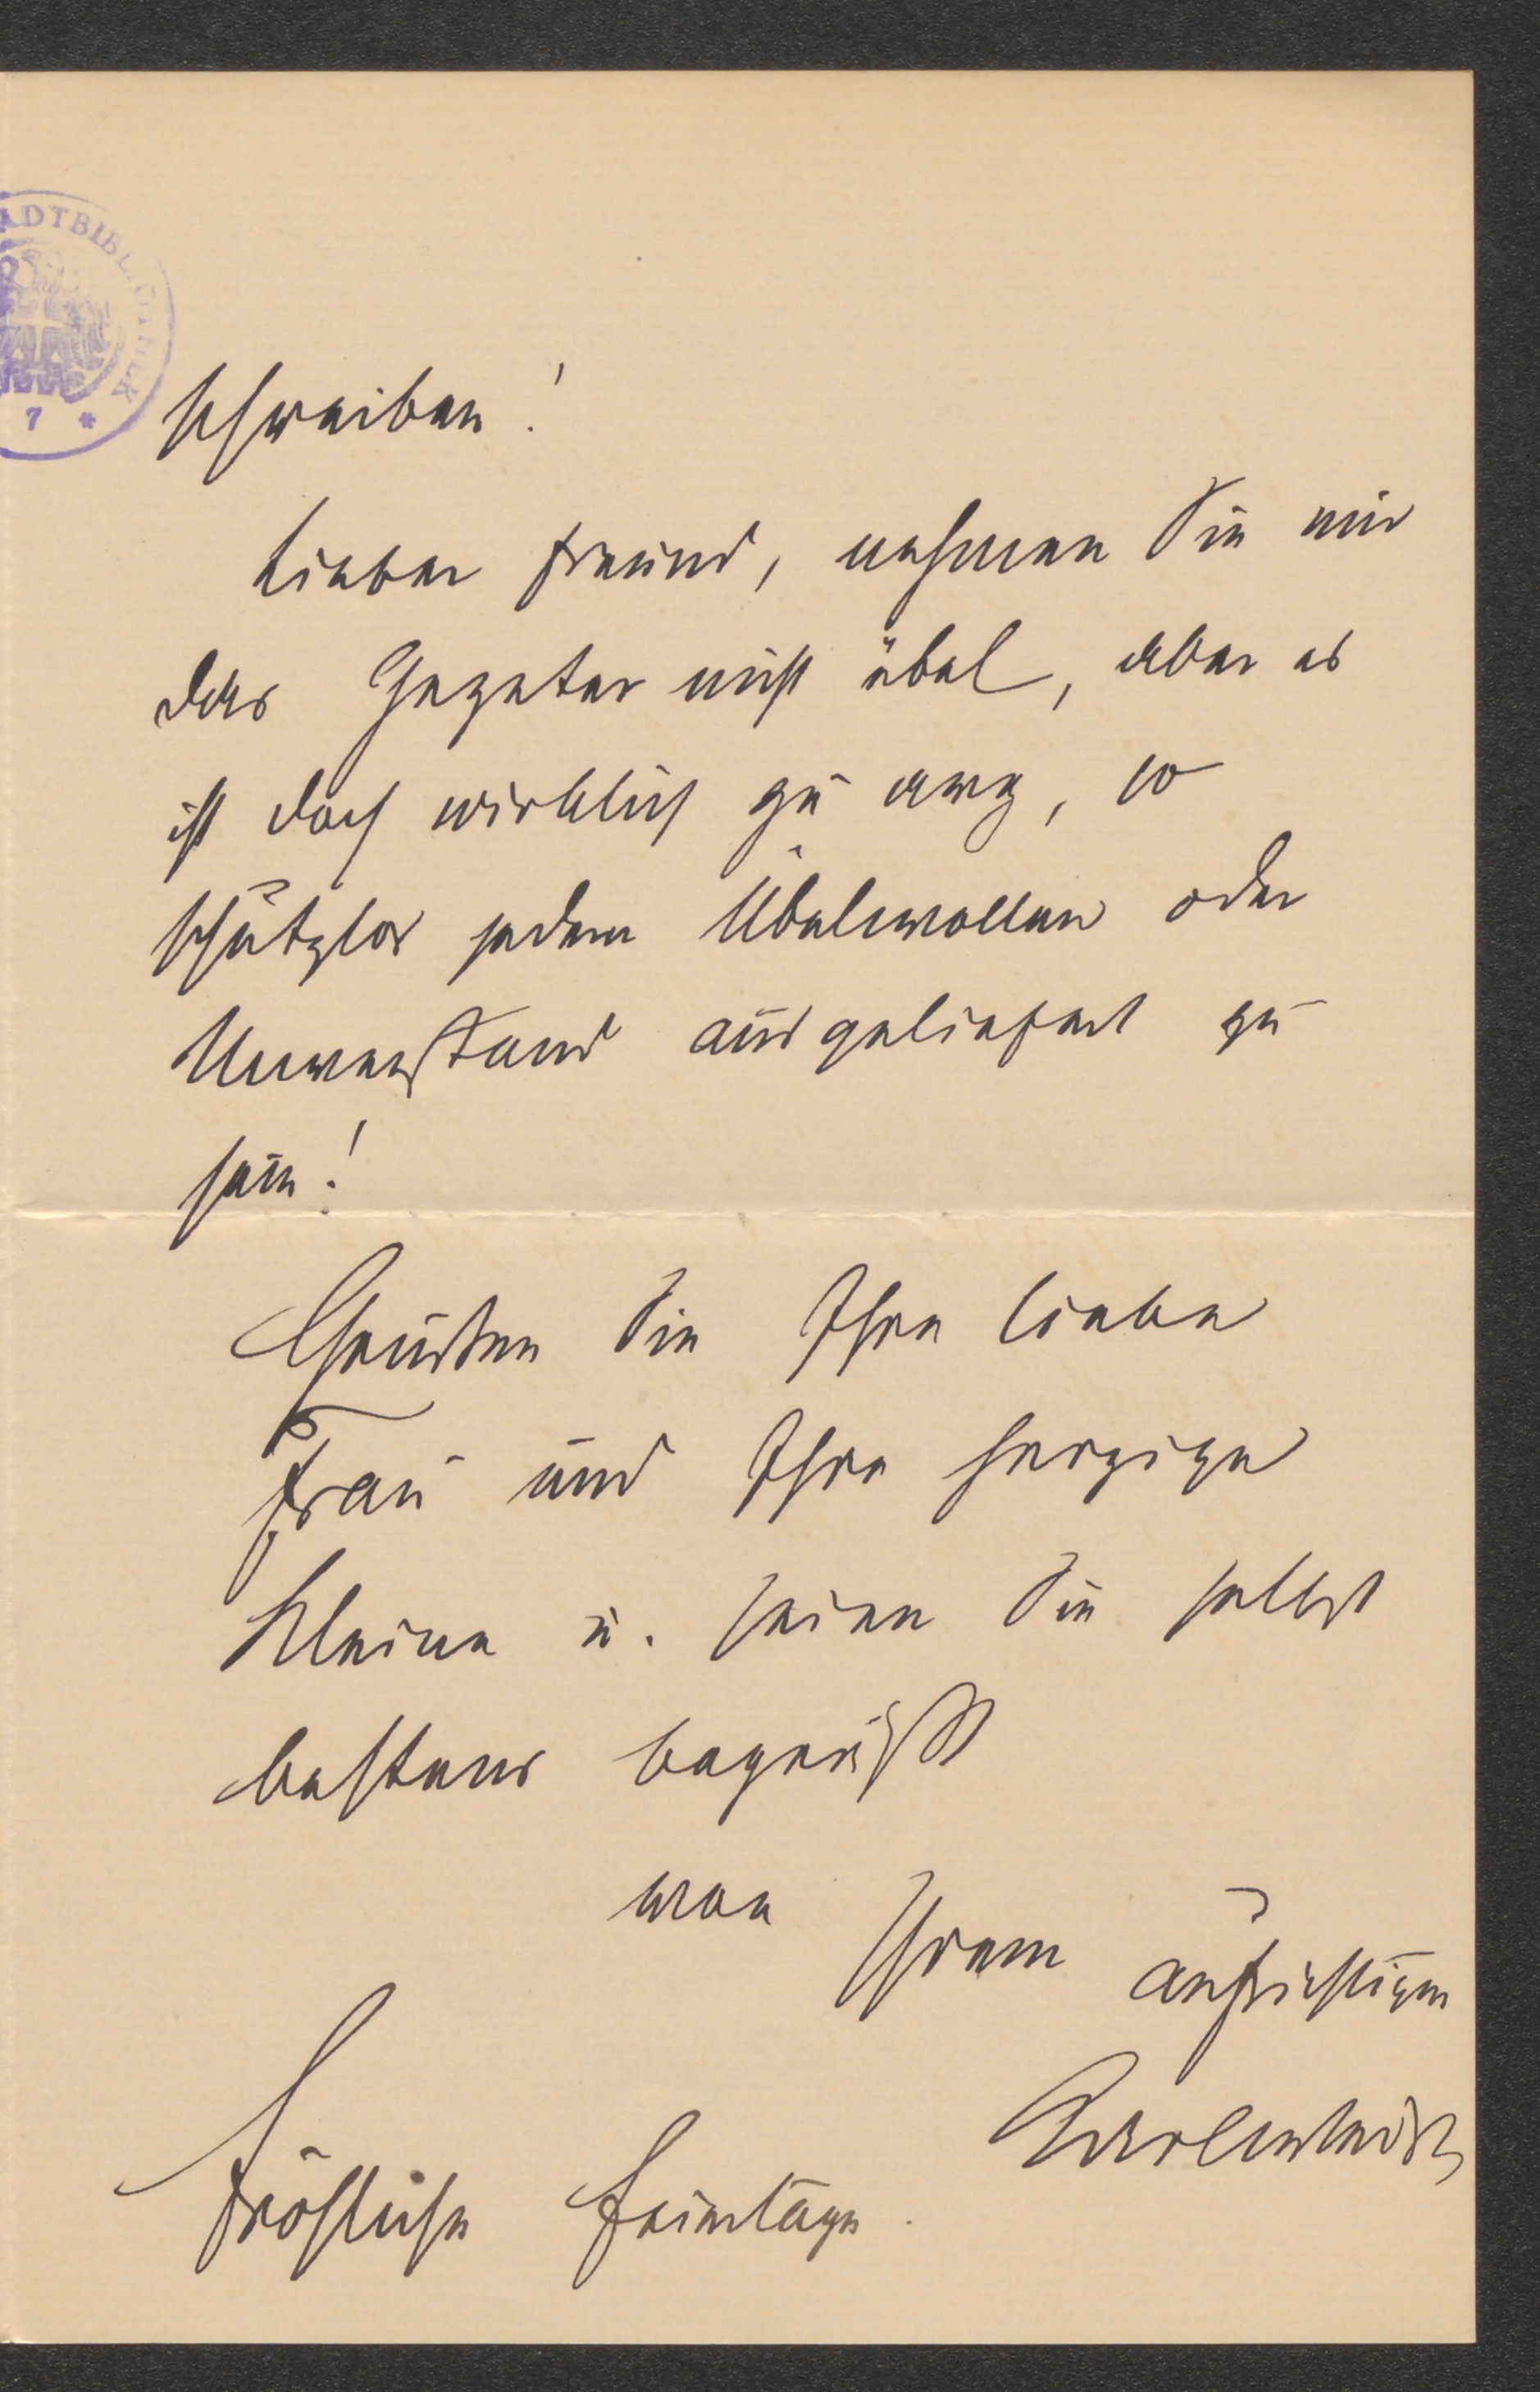 STADTBIBLIOTHEK
7 *
schreiben!
Lieber Freund, nehmen Sie mir
das Gezeter nicht übel, aber es
ist doch wirklich zu arg, so
schutzlos jedem Übelwollen oder
Unverstand ausgeliefert zu
sein!
Grüßen Sie Ihre liebe
Frau und Ihre herzige
Kleine u. seien Sie selbst
bestens begrüßt
von Ihrem aufrichtigen
Karlweis
Fröhliche Feiertage.